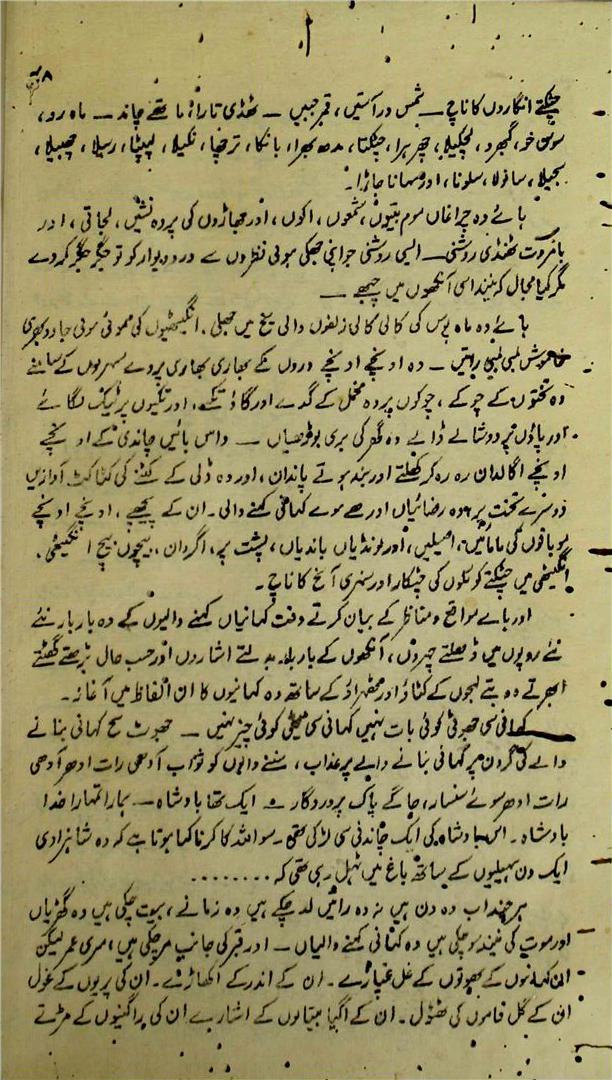 چٹختے انگاروں کا ناچ — شمس در آستیں، قمر جبیں — ٹھڈی تارا، ماتھے چاند — ماہ رو،
سوسن خو، گھبرو، لچکیلا، چھرہرا، چمکتا، مدھ بھرا، بانکا، ترچھا، نکیلا، لپیٹا، رسیلا، چھبیلا،
سجیلا، سانولا، سلونا، اور سہانا جاڑا۔
ہائے وہ چراغاں موم بتیوں، شمعوں، اکوں، اور جھاڑوں کی پردہ نشیں، لجاتی، اور
بامروت ٹھنڈی روشنی — ایسی روشنی جو اپنی جھکی ہوئی نظروں سے در و دیوار کو تو جگر جگر کر دے
مگر کیا مجال کہ نینداسی آنکھوں میں چبھے —
ہائے وہ ماہ پوس کی کالی کالی زلفوں والی یخ میں جھلی، انگیٹھیوں کی سموئی ہوئی جادو بھری
خاموش لمبی لمبی راتیں — وہ اونچے اونچے دروں کے بھاری بھاری پردے سہریوں کے سامنے
وہ تختوں کے چوکے، چوکوں پر وہ مخمل کے گدے اور گاؤ تکیے، اور تکیوں پر ٹیک لگائے
اور پاؤں پر دوشالے ڈالے وہ گھر کی بڑی بوڑھیاں — داہیں بائیں چاندی کے اونچے
اونچے اگالدان رہ رہ کر کھلتے اور بند ہوتے پاندان، اور وہ ڈلی کے کٹنے کی کٹا کٹ آوازیں
دوسرے تخت پر وہ رضائیاں اوڑھے ہوے کہانی کہنے والی۔ ان کے پیچھے، اونچے اونچے
موباقوں کی مامائیں، اصیلیں، اور لونڈیاں باندیاں، پشت پر، اگردان، بیچوں بیچ انگیٹھی،
انگیٹھی میں چٹختے کوئلوں کی چٹکار اور سنہری آنچ کا ناچ۔
اور ہائے مواقع و مناظر کے بیان کرتے وقت کہانیاں کہنے والیوں کے وہ بار بار نئے
نئے روپوں میں ڈھلتے چہروں، آنکھوں کے بار بار بدلتے اشاروں اور حسب حال بڑھتے گھٹتے
ابھرتے دبتے لہجوں کے کٹاؤ اور ٹھہراؤ کے ساتھ وہ کہانیوں کا ان الفاظ میں آغاز۔
کہانی سی جھوٹی کوئی بات نہیں کہانی سی میٹھی کوئی چیز نہیں — جھوٹ سچ کہانی بنانے
والے کی گردن پر کہانی بنانے والے پر عذاب، سننے والوں کو ثواب آدھی رات ادھر آدھی
رات ادھر سوئے سنسار، جاگے پاک پروردگار۔ ایک تھا بادشاہ — ہمارا تمہارا خدا
بادشاہ۔ اس بادشاہ کی ایک چاندنی سی لڑکی تھی۔ سو اللہ کا کرنا کیا ہوتا ہے کہ وہ شاہزادی
ایک دن سہیلیوں کے ساتھ باغ میں ٹہل رہی تھی کہ ........
ہر چند اب وہ دن ہیں نہ وہ راتیں لد چکے ہیں وہ زمانے، بیت چکی ہیں وہ گھڑیاں
اور موت کی نیند سو چکی ہیں وہ کہانی کہنے والیاں — اور قبر کی جانب مڑ چکی ہے، میری عمر لیکن
ان کہانیوں کے بھوتوں کے غل غپاڑے۔ ان کے اندر کے اکھاڑے۔ ان کی پریوں کے غول
ان کے گل فاموں کی ٹھٹول۔ ان کے اگیا بیتالوں کے اشارے ان کی براگنیوں کے مڑتے